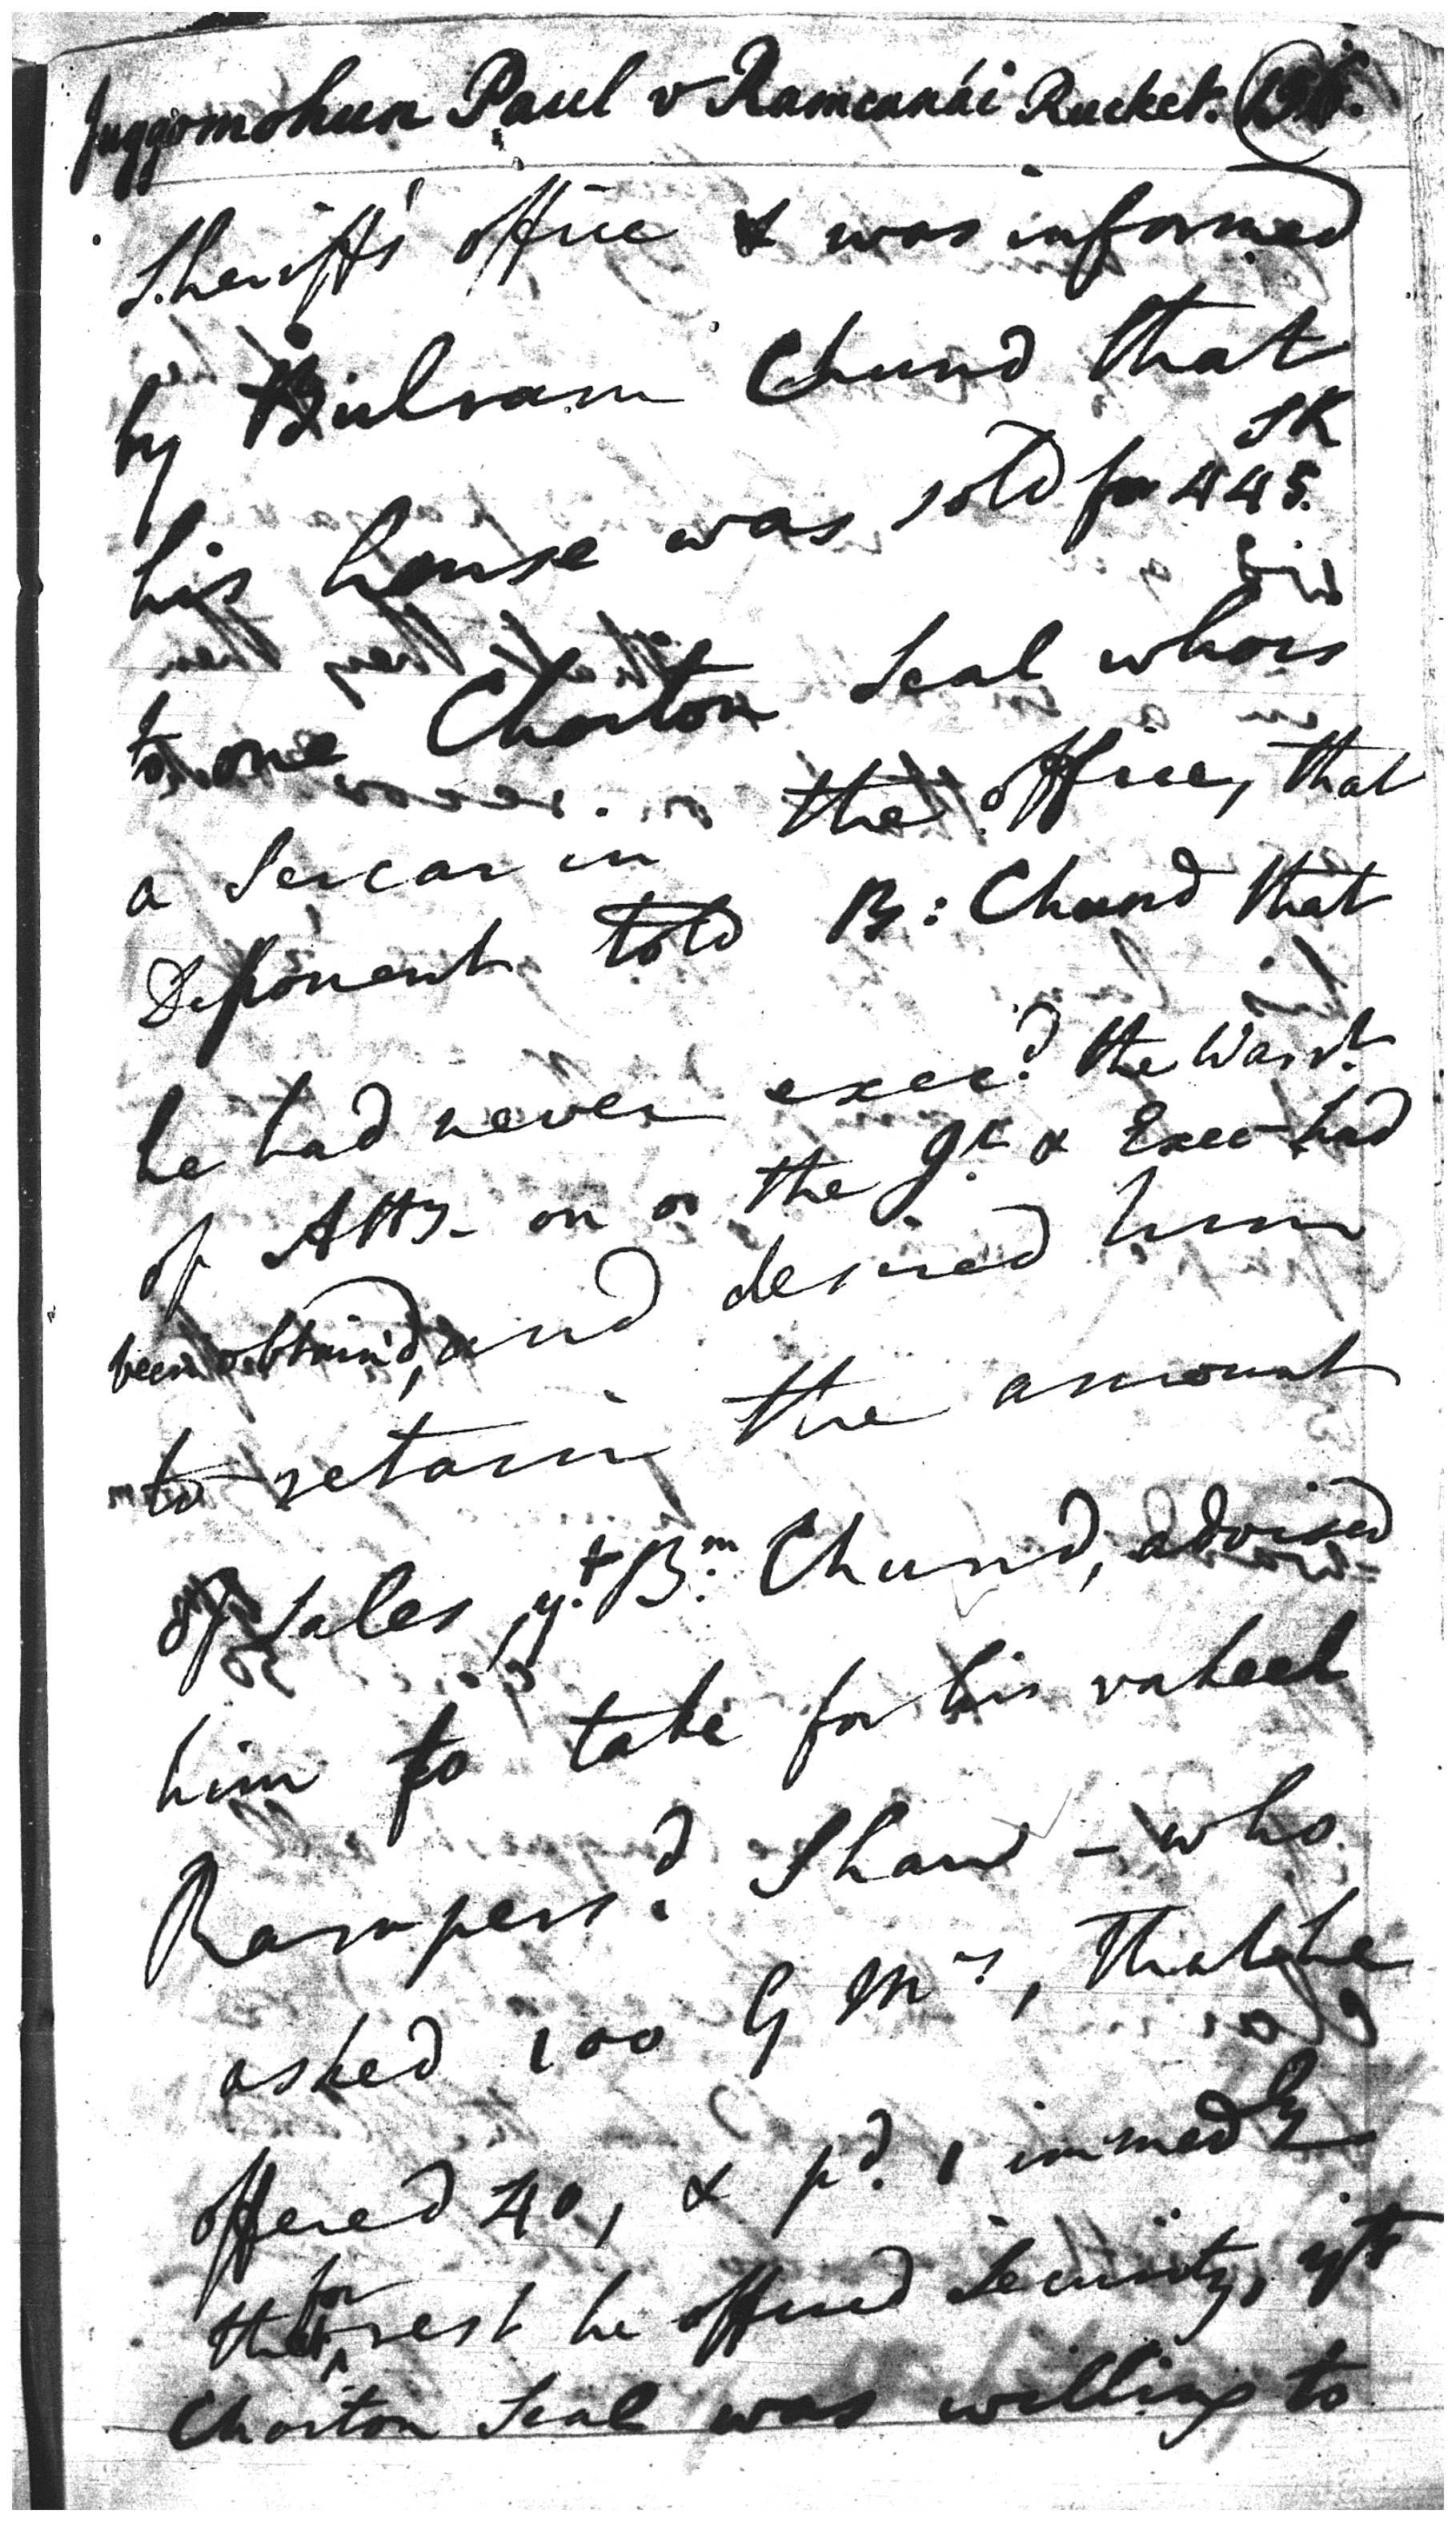 Juggomohun Paul v Ramcanái Rucket.
Sheriffs' office & was informed
by Bulram Chund that
SK
his house was sold for 445.
to one Choiton Seal who is
a Sercar in the office, that
Deponent told B: Chund that
he had never exec.d the Warrt.
of Atty. on or the Jt. & Exec had
been obtain'd, and desired him
to retain the amount
of sales, yt. Bm. Chund, advised
him to take for his vakeel
Rampers.d Shaw - who
asked 100 G Mrs, that he
offered 40, & pd. 1 immedly
for
the rest he offered Security, yt
Choiton Seal was willing to